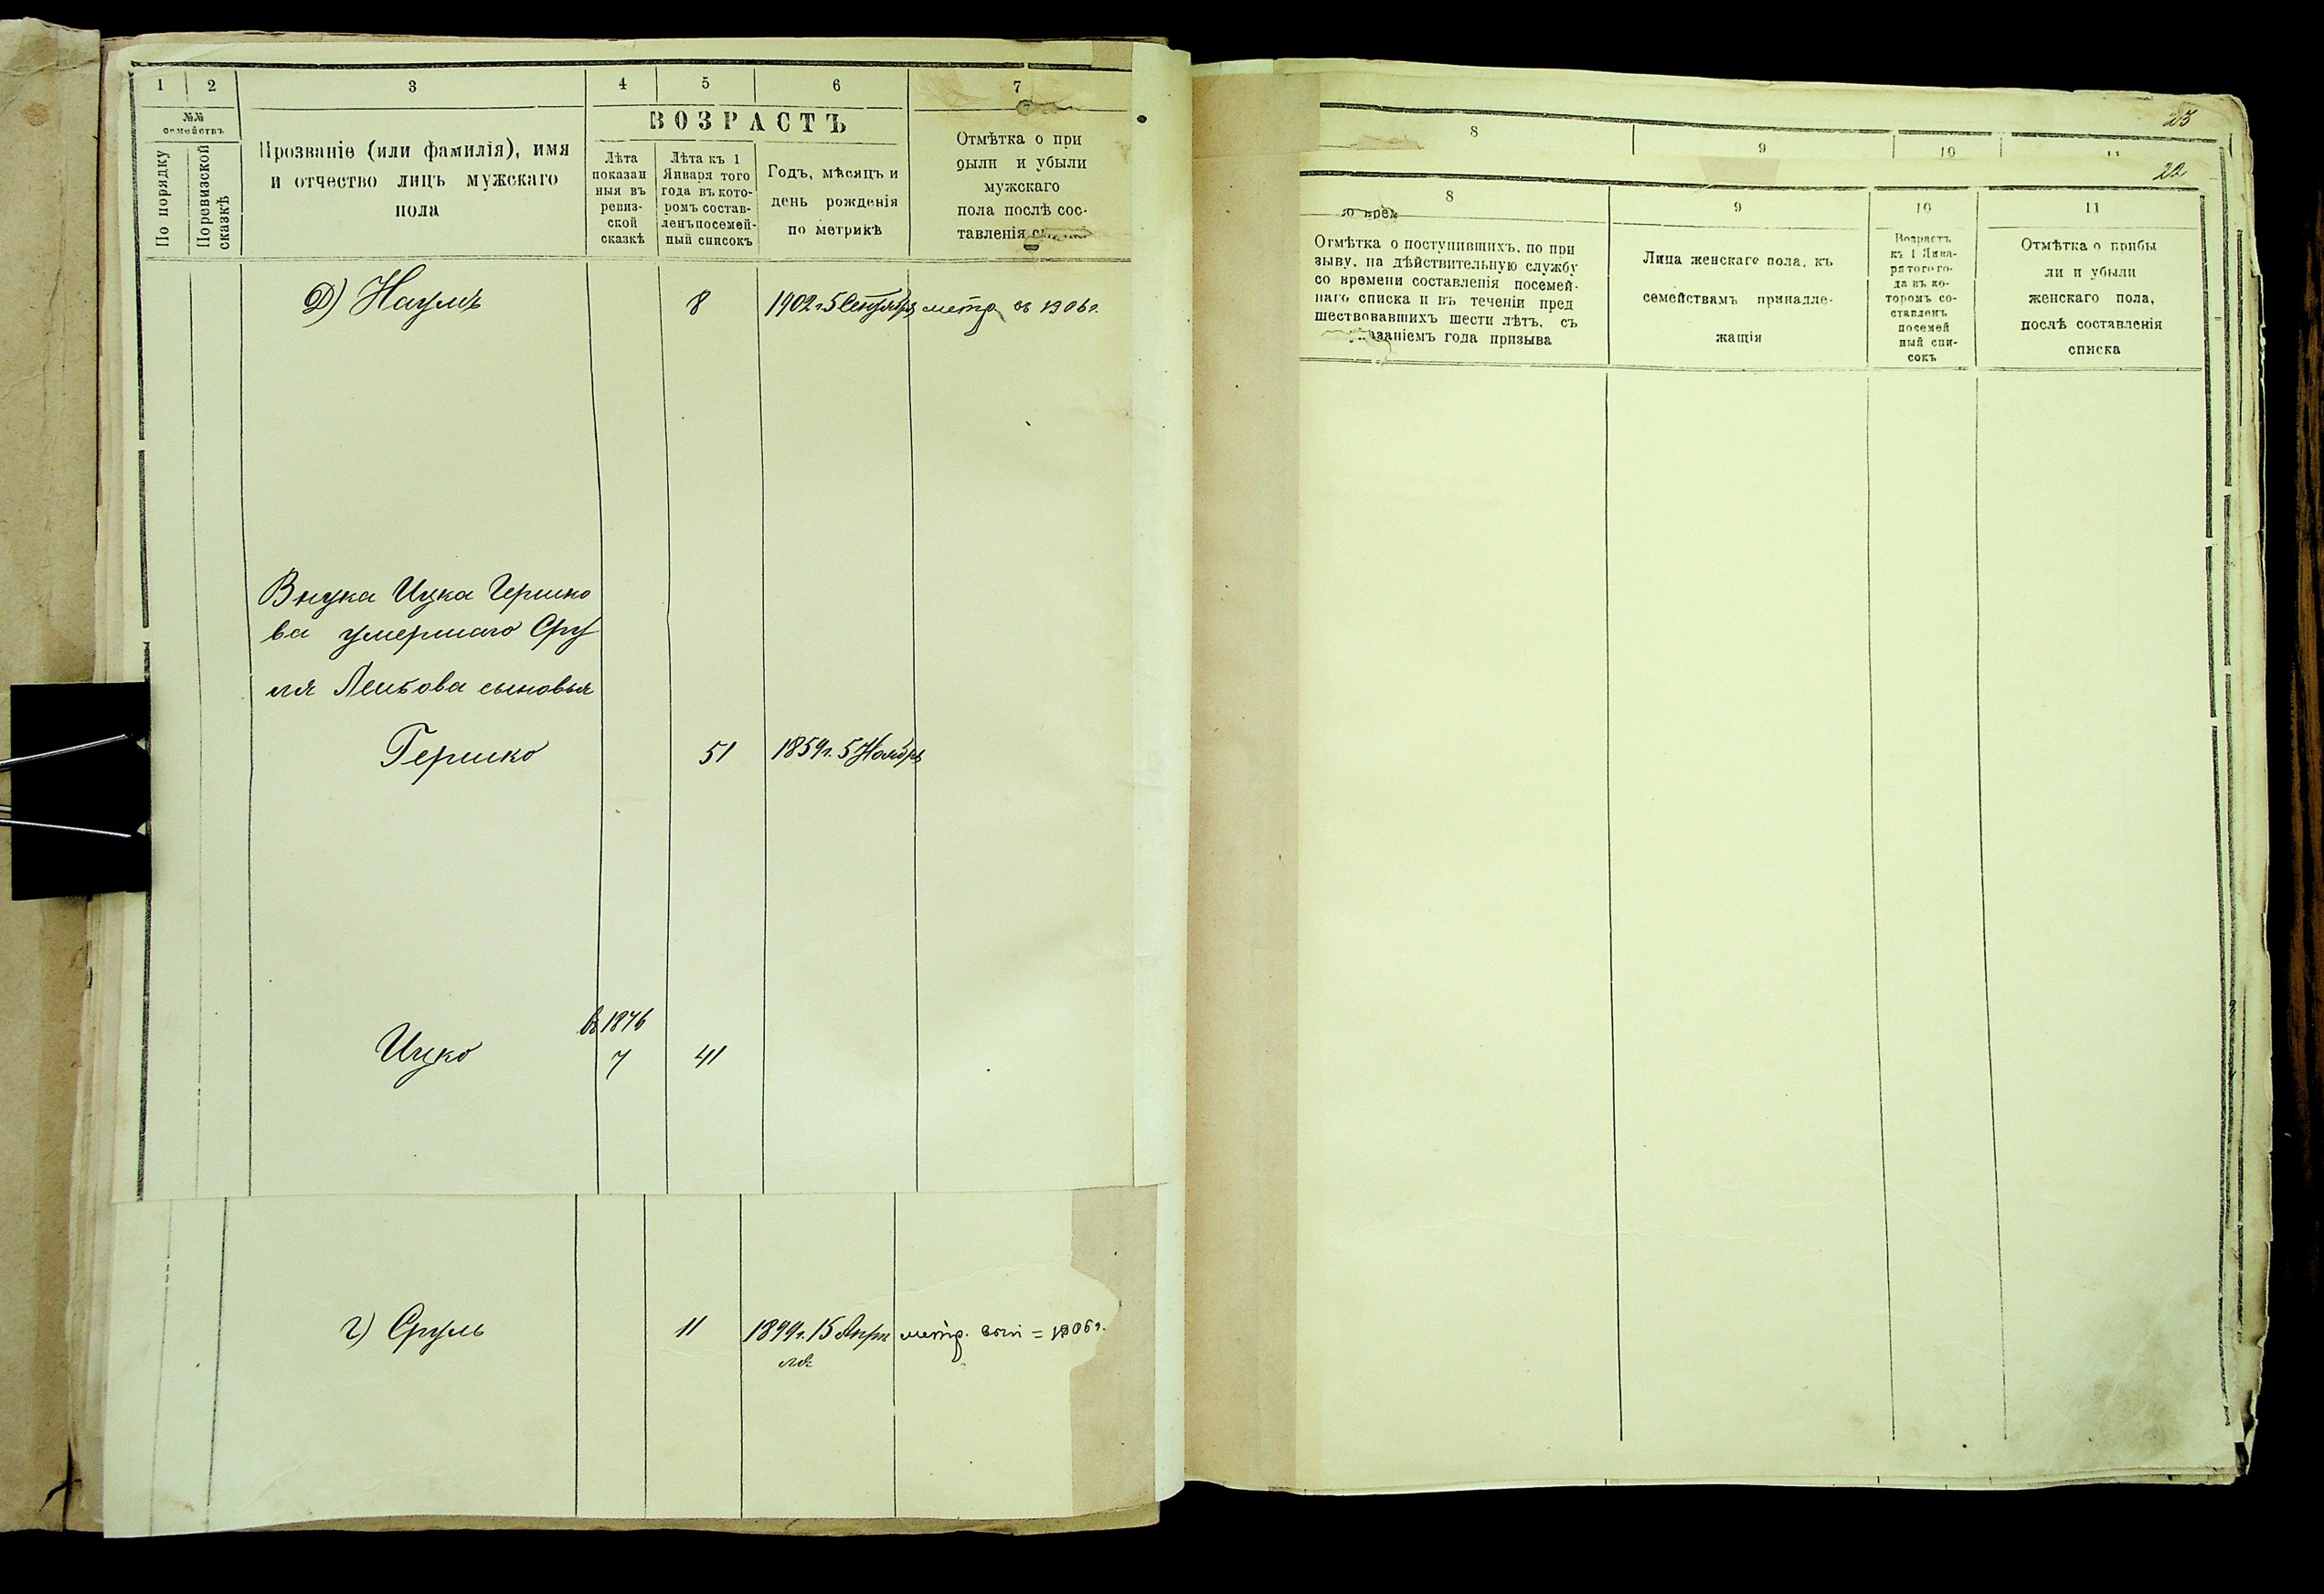 1 2 3 4 5 6 7
№№ семействъ
По порядку
По ревизской сказкѣ
Прозваніе (или фамилія), имя
и отчество лицъ мужскаго
пола
ВОЗРАСТЪ
Лѣта
показан
ныя въ
ревиз-
ской
сказкѣ
Лѣта къ 1
Января того
года въ кото-
ромъ состав-
ленъ посемей-
ный списокъ
Годъ, мѣсяцъ и
день рожденія
по метрикѣ
Отмѣтка о при
были и убыли
мужскаго
пола послѣ сос-
тавленія
Д) Наумъ 8 1902 г. 5 Сентября метр 1906 г.
Внука Ицка Гершко
ва умершаго Сру
ля Лейбова сыновья
Гершко 51 1859 г. 5 Ноября
въ 1876
Ицко 7 41
г) Сруль 11 1899 г. 15 Апрѣ метр. 1906 г.
ля
23
8 9 10 11
22
8 9 10 11
Отмѣтка о поступившихъ, по при
зыву, на дѣйствительную службу
со времени составленія посемей-
наго списка и въ теченіи пред
шествовавшихъ шести лѣтъ, съ
указаніемъ года призыва
Лица женскаго пола, къ
семействамъ принадле-
жащія
Возрастъ
къ 1 Янва-
ря того го-
да въ ко-
торомъ со-
ставленъ
посемей
ный спи-
сокъ
Отмѣтка о прибы
ли и убыли
женскаго пола,
послѣ составленія
списка